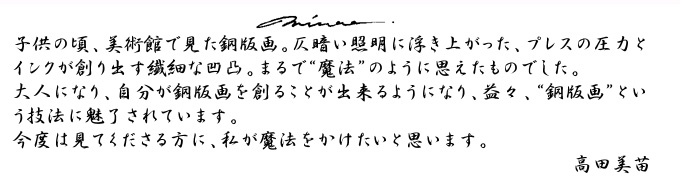 Minae
子供の頃、美術館で見た銅版画。仄暗い照明に浮き上がった、プレスの圧力と
インクが創り出す繊細な凹凸。まるで“魔法”のように思えたものでした。
大人になり、自分が銅版画を創ることが出来るようになり、益々、“銅版画”とい
う技法に魅了されています。
今度は見てくださる方に、私が魔法をかけたいと思います。
高田美苗